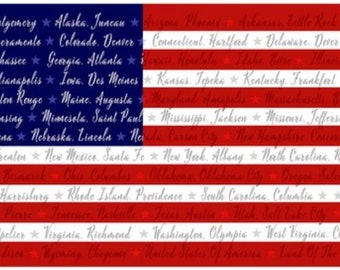 ntgomery ★ Alaska, Juneau ★ Arizona, Phoenix ★ Arkansas, Little Rock
acramento ★ Colorado, Denver ★ Connecticut, Hartford ★ Delaware, Dover
hassee ★ Georgia, Atlanta ★ Hawaii, Honolulu ★ Idaho, Boise ★
dianapolis ★ Iowa, Des Moines ★ Kansas, Topeka ★ Kentucky, Frankfort
ton Rouge ★ Maine, Augusta ★ Maryland, Annapolis ★ Massachusetts
nsing ★ Minnesota, Saint Paul ★ Mississippi, Jackson ★ Missouri, Jeffers
★ Nebraska, Lincoln ★ Nevada, Carson City ★ New Hampshire, Concor
renton ★ New Mexico, Santa Fe ★ New York, Albany ★ North Carolina, R
Bismarck ★ Ohio, Columbus ★ Oklahoma, Oklahoma City ★ Oregon, Sale
Harrisburg ★ Rhode Island, Providence ★ South Carolina, Columbia ★
Pierre ★ Tennessee, Nashville ★ Texas, Austin ★ Utah, Salt Lake City
tpelier ★ Virginia, Richmond ★ Washington, Olympia ★ West Virginia, C
adison ★ Wyoming, Cheyenne ★ United States ★ Land Of The